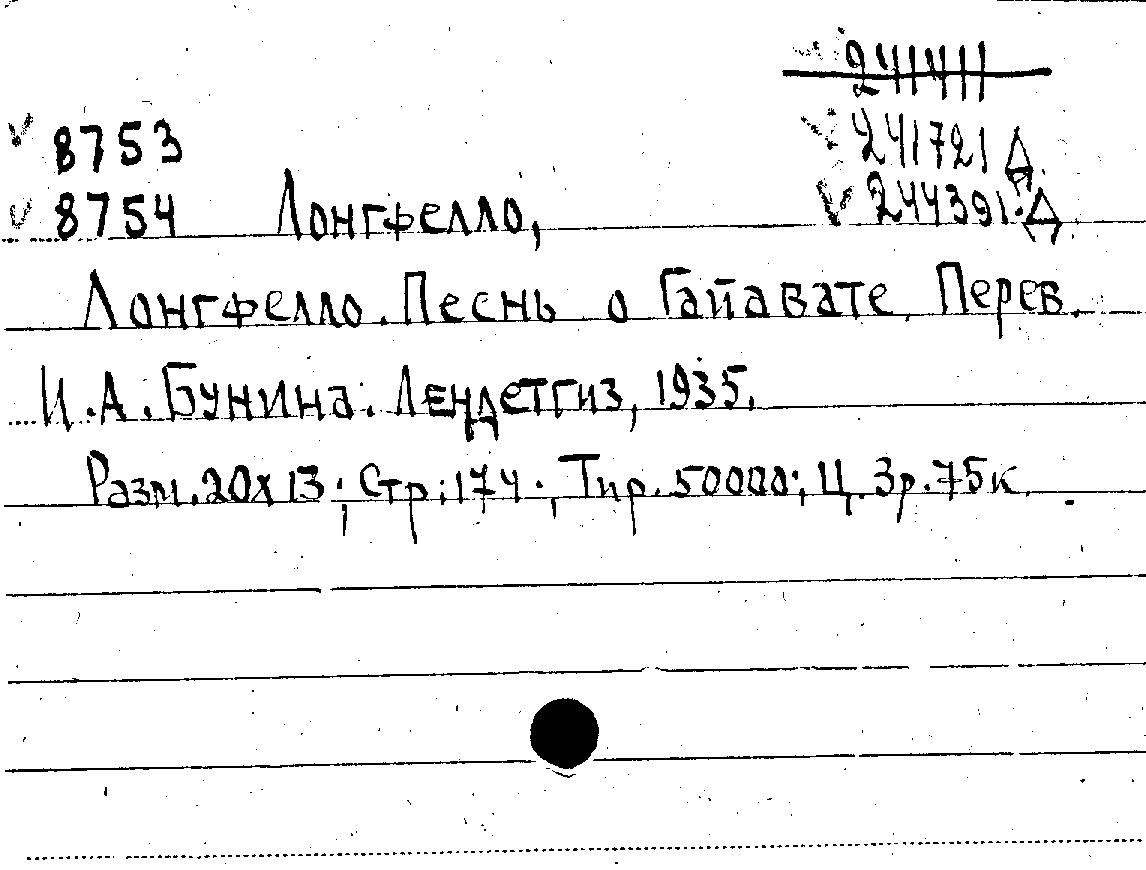 241411
8753 241721 Д
8754 Лонгфелло, 244391 Д
Лонгфелло. Песнь о Гайавате. Перев.
И.А. Бунина. Лендетгиз, 1935.
Разм. 20х13; Стр: 174; Тир. 50000; Ц. 3р. 75к.